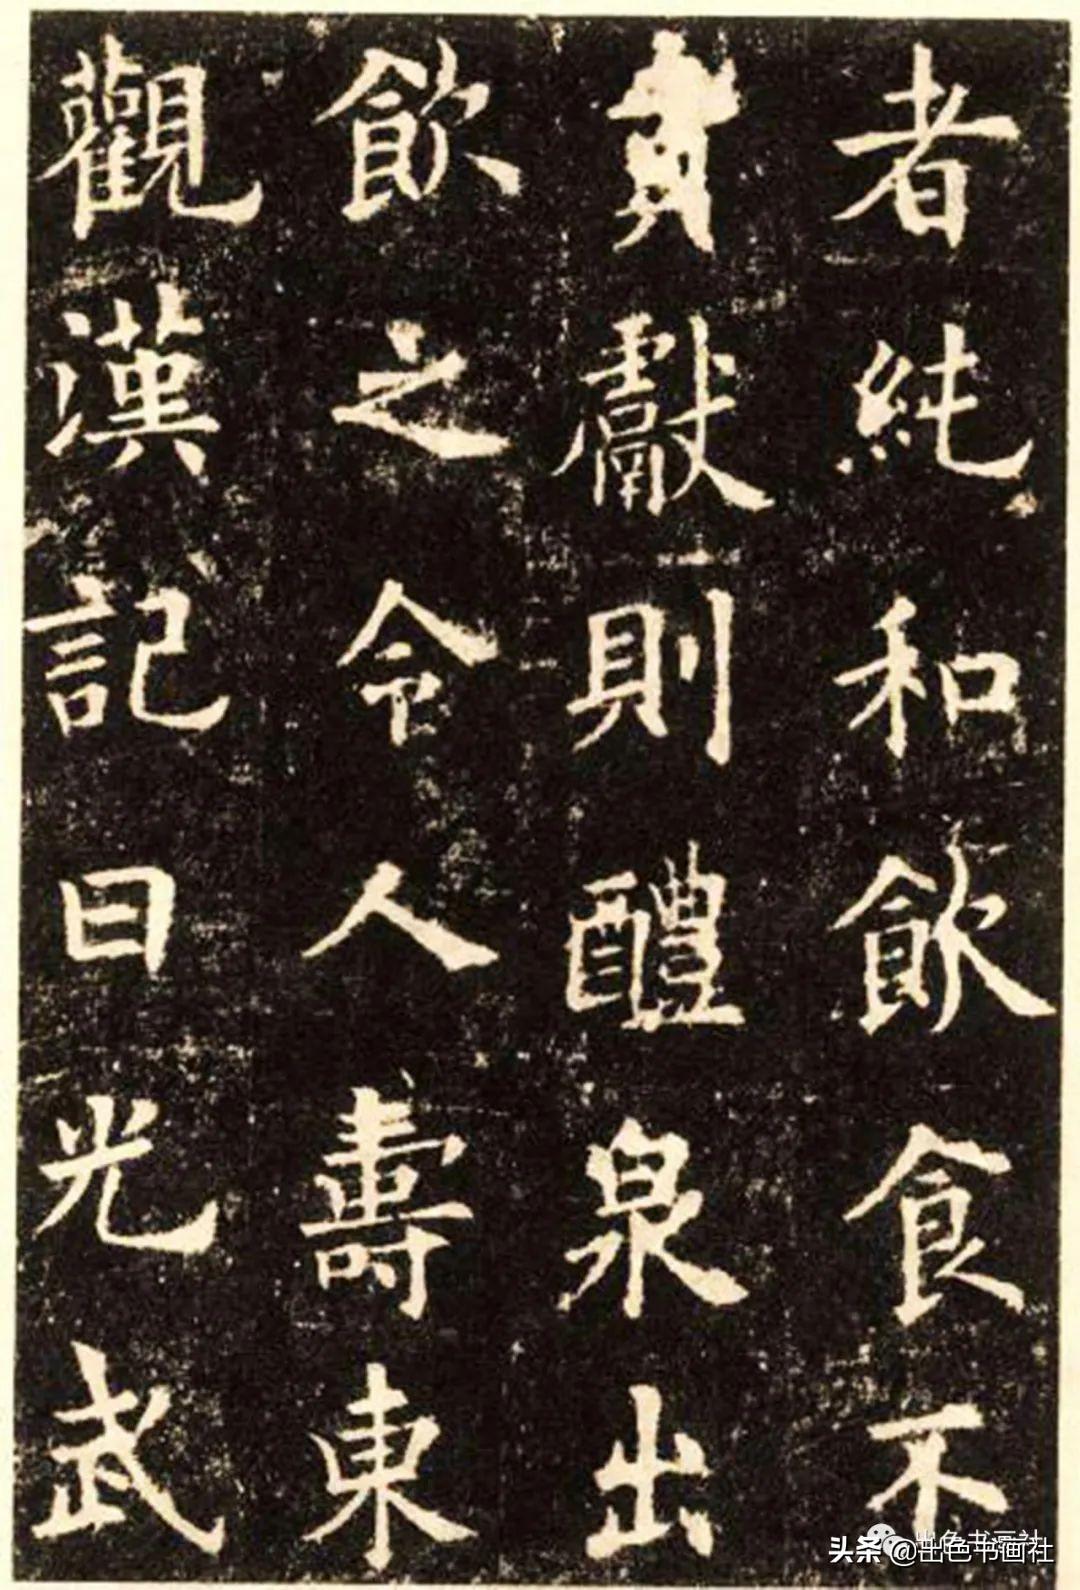 者純和飲食不
貢獻則醴泉出
飲之令人壽東
觀漢記曰光武
出色书画社
头条 @出色书画社